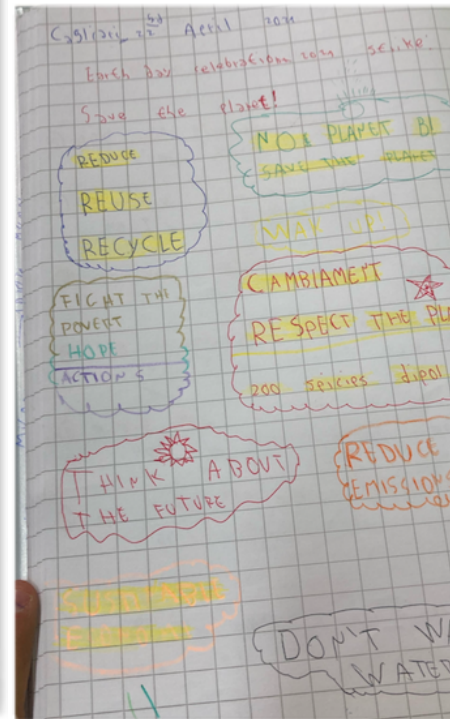 Cagliari 22nd April 2021
Earth Day celebration 2021 strike
Save the planet!
REDUCE
REUSE
RECYCLE
NOX PLANET B
SAVE THE PLANET
WAK UP!
FIGHT THE
POVERT
HOPE
ACTIONS
CAMBIAMENT
RESPECT THE PL
200 speicies dipol
THINK ABOUT
THE FUTURE
REDUCE
EMISSIONS
DON'T WA
WATER